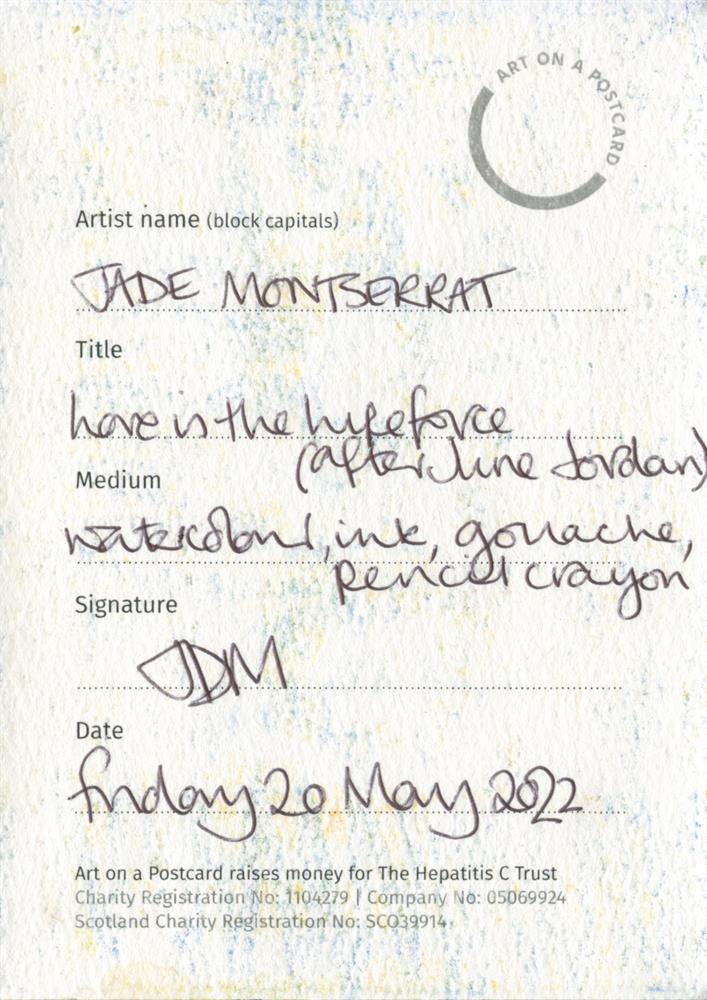 ART ON A POSTCARD
Artist name (block capitals)
JADE MONTSERRAT
Title
love is the lifeforce
(after June Jordan)
Medium
watercolour, ink, gouache,
pencil crayon
Signature
JDM
Date
friday 20 May 2022
Art on a Postcard raises money for The Hepatitis C Trust
Charity Registration No: 1104279 | Company No: 05069924
Scotland Charity Registration No: SCO39914